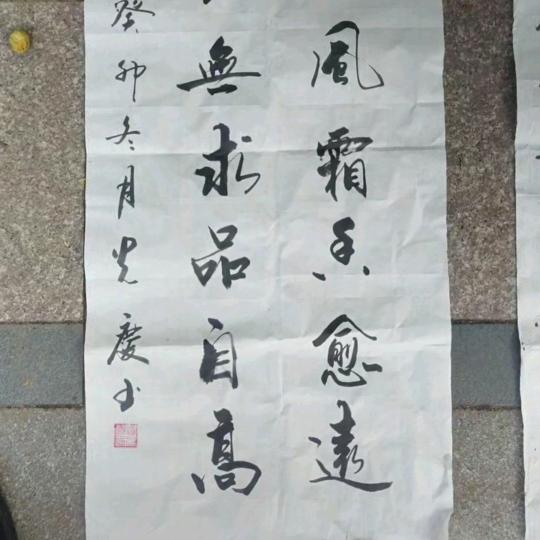 風霜香愈遠
無求品自高
癸卯冬月光慶书